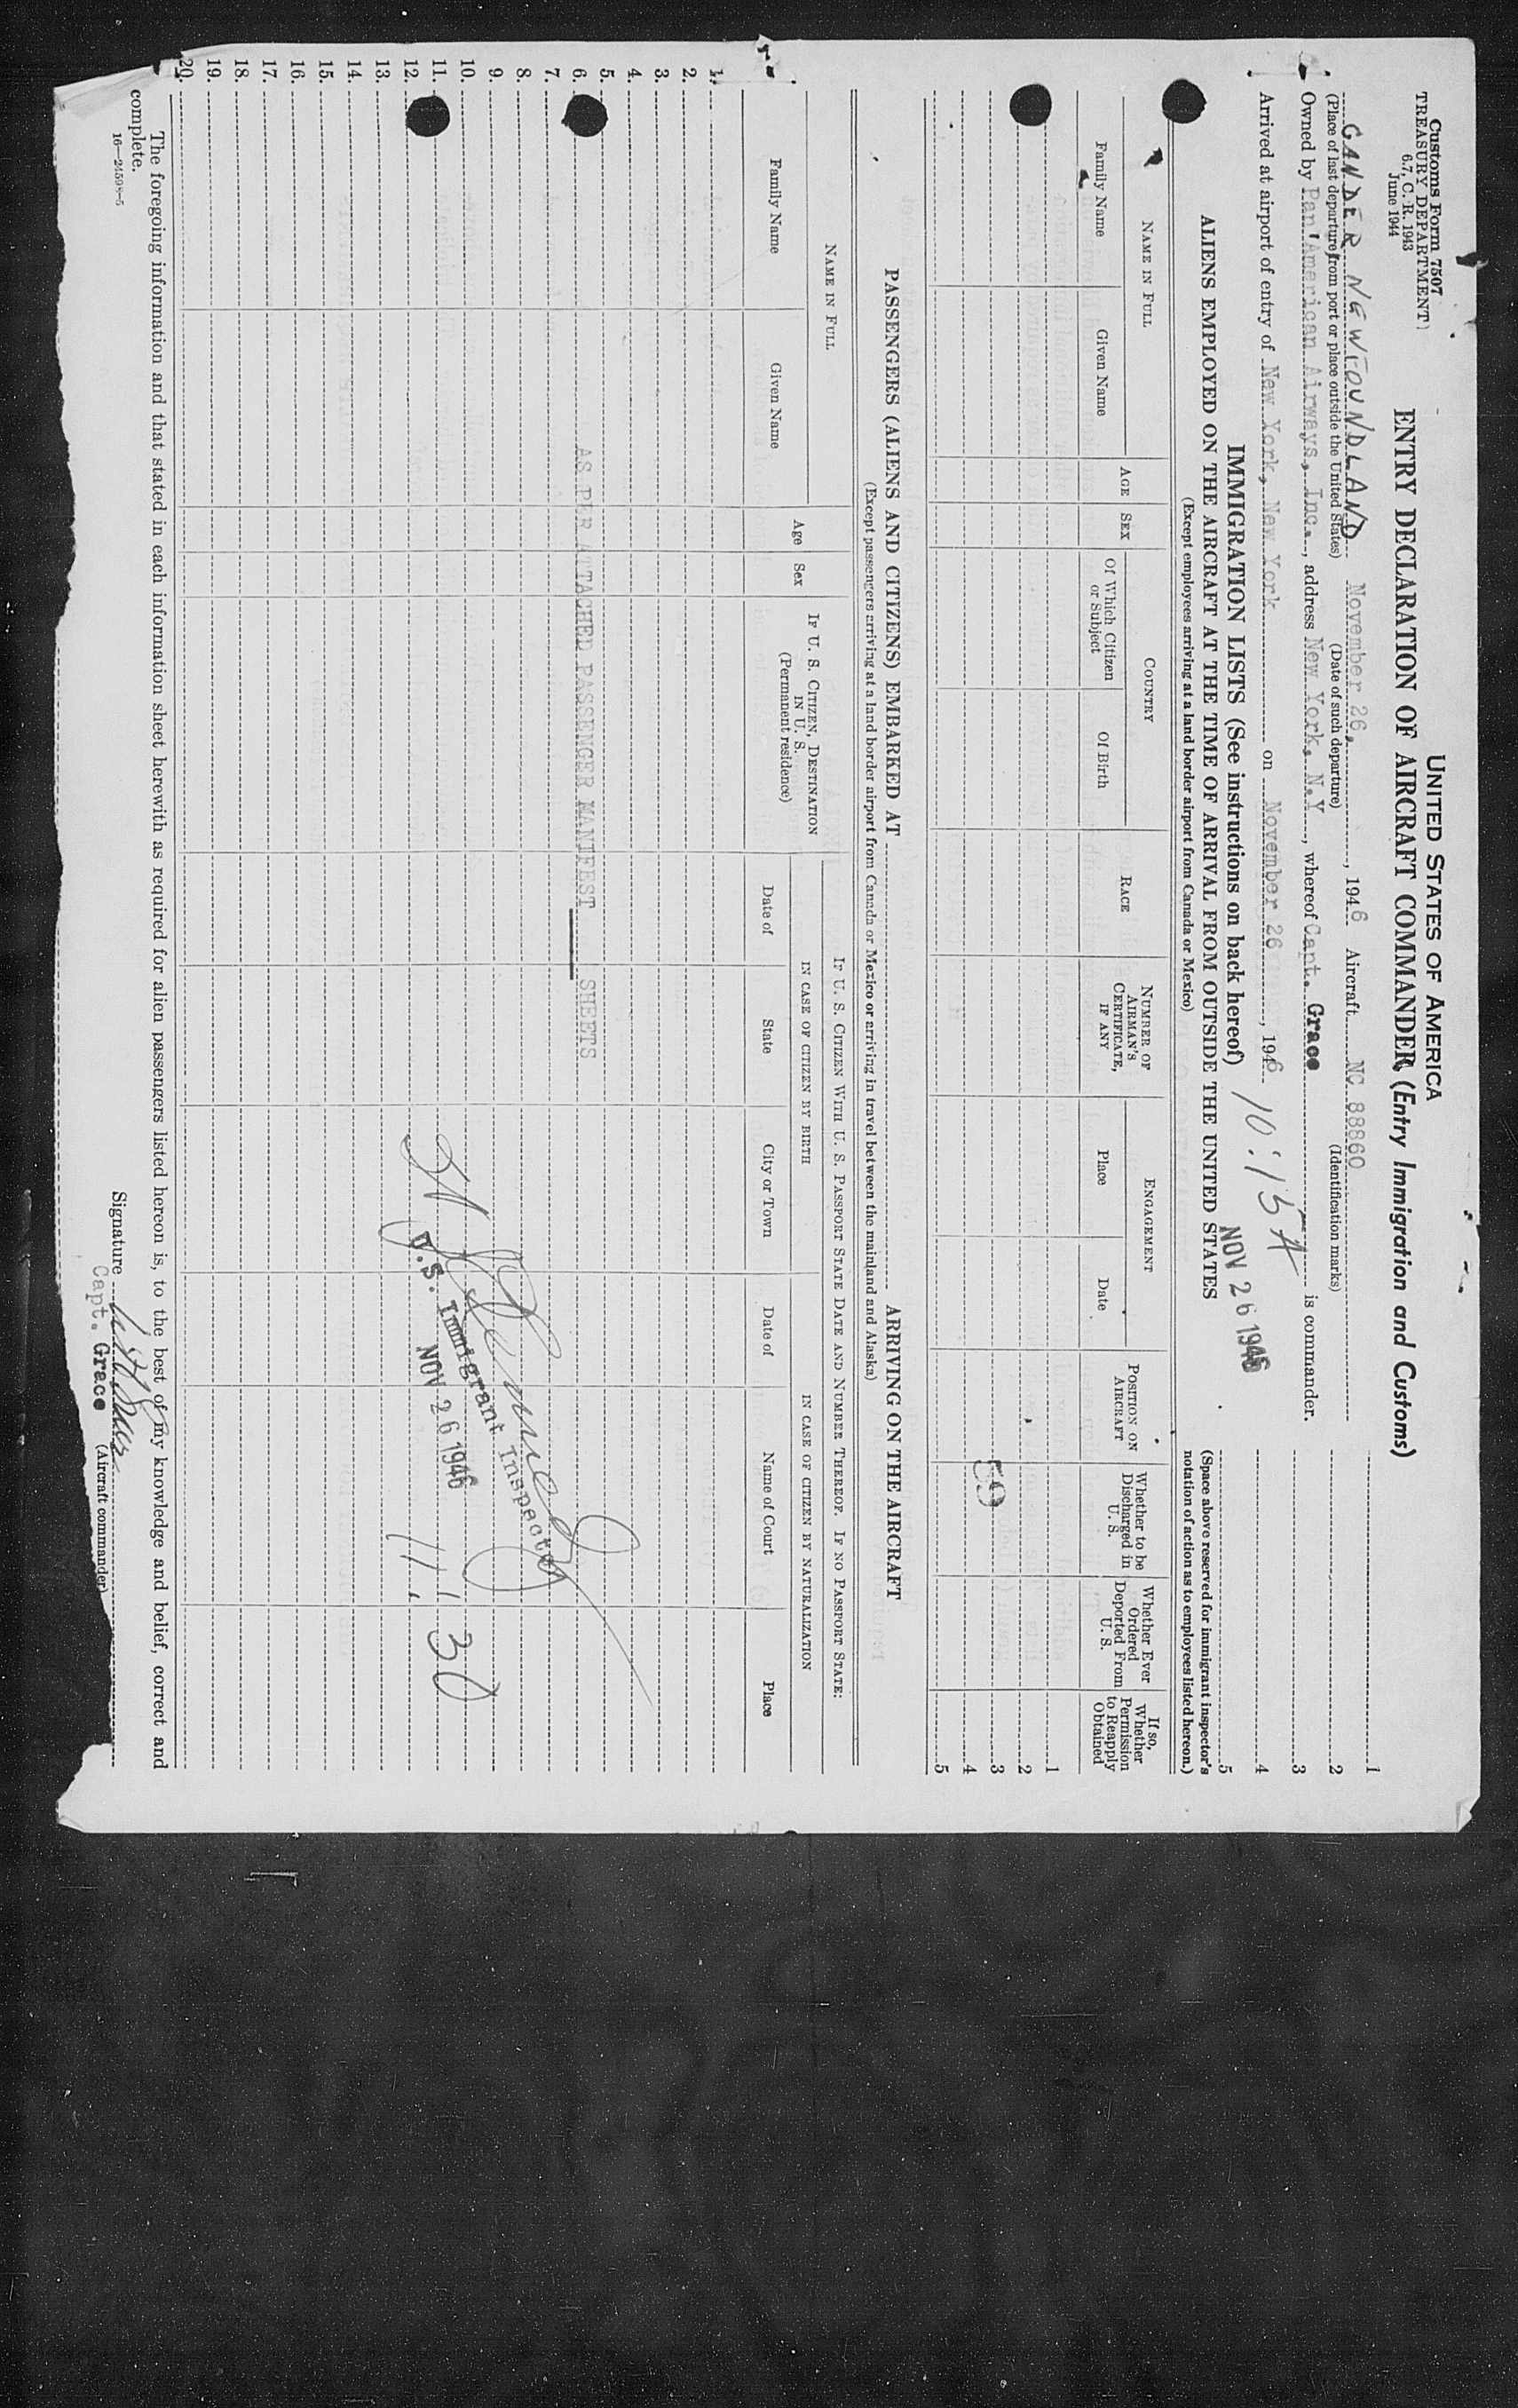 Customs Form 7507
TREASURY DEPARTMENT
6.7, C. R. 1943
June 1944
UNITED STATES OF AMERICA
ENTRY DECLARATION OF AIRCRAFT COMMANDER (Entry Immigration and Customs)
GANDER NEWFOUNDLAND November 26, , 1946 Aircraft NC 88860
(Place of last departure from port or place outside the United States) (Date of such departure) (Identification marks)
Owned by Pan American Airways, Inc. , address New York, N.Y. , whereof Capt. Grace is commander.
Arrived at airport of entry of New York, New York on November 26 , 1946 10:15A
NOV 26 1946
1
2
3
4
5
(Space above reserved for immigrant inspector's notation of action as to employees listed hereon.)
IMMIGRATION LISTS (See instructions on back hereof)
ALIENS EMPLOYED ON THE AIRCRAFT AT THE TIME OF ARRIVAL FROM OUTSIDE THE UNITED STATES
(Except employees arriving at a land border airport from Canada or Mexico)
NAME IN FULL
Family Name Given Name
AGE SEX
COUNTRY
Of Which Citizen or Subject Of Birth
RACE
NUMBER OF AIRMAN'S CERTIFICATE, IF ANY
ENGAGEMENT
Place Date
POSITION ON AIRCRAFT
Whether to be Discharged in U. S.
Whether Ever Ordered Deported From U. S.
If so, Whether Permission to Reapply Obtained
1
2
3
59
4
5
PASSENGERS (ALIENS AND CITIZENS) EMBARKED AT ARRIVING ON THE AIRCRAFT
(Except passengers arriving at a land border airport from Canada or Mexico or arriving in travel between the mainland and Alaska)
NAME IN FULL
Family Name Given Name
Age Sex
IF U. S. CITIZEN, DESTINATION IN U. S.
(Permanent residence)
IF U. S. CITIZEN WITH U. S. PASSPORT STATE DATE AND NUMBER THEREOF. IF NO PASSPORT STATE:
IN CASE OF CITIZEN BY BIRTH IN CASE OF CITIZEN BY NATURALIZATION
Date of State City or Town Date of Name of Court Place
1.
2.
3.
4.
5.
6. AS PER ATTACHED PASSENGER MANIFEST SHEETS
7.
8.
9.
10.
11.
12.
U.S. Immigrant Inspector
NOV 26 1946
11:30
13.
14.
15.
16.
17.
18.
19.
20.
The foregoing information and that stated in each information sheet herewith as required for alien passengers listed hereon is, to the best of my knowledge and belief, correct and
complete.
16—24598-5
Signature
Capt. Grace (Aircraft commander)